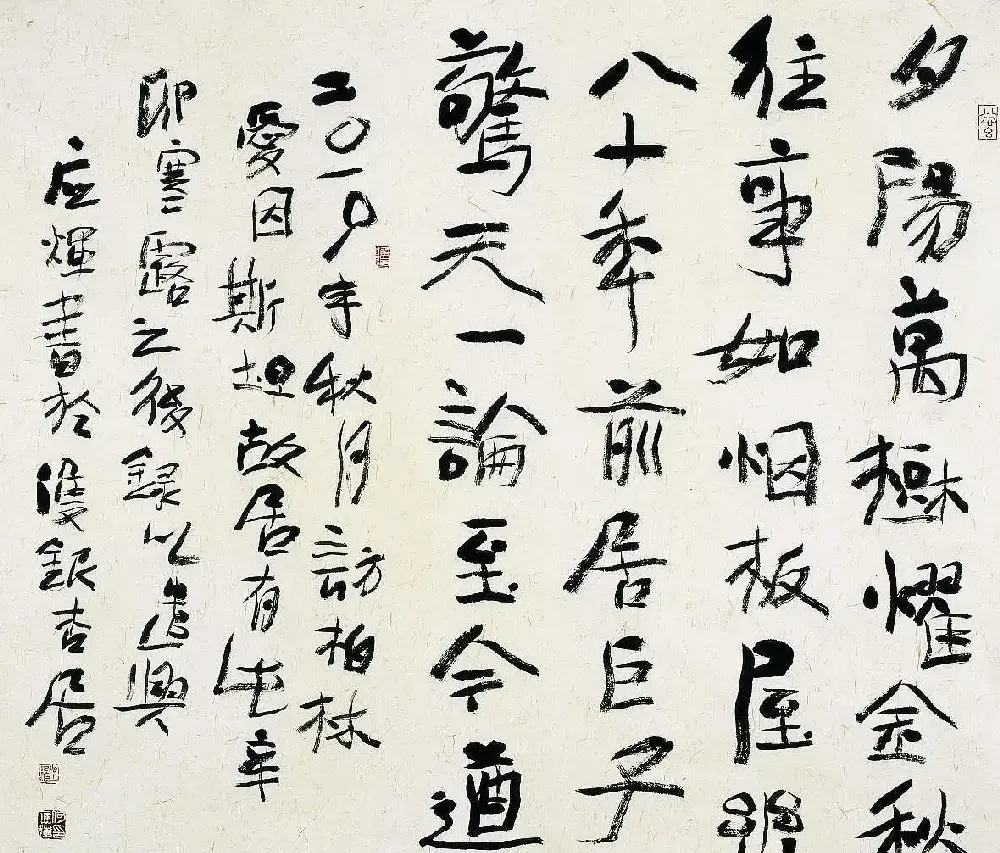 夕陽萬燿金秋
往事如烟板屋
八十年前居巨子
驚天一論至今遒
二〇一〇年秋月訪柏林
愛因斯坦故居有作辛
卯寒露之後録以遣興
应輝書於雙銀杏居